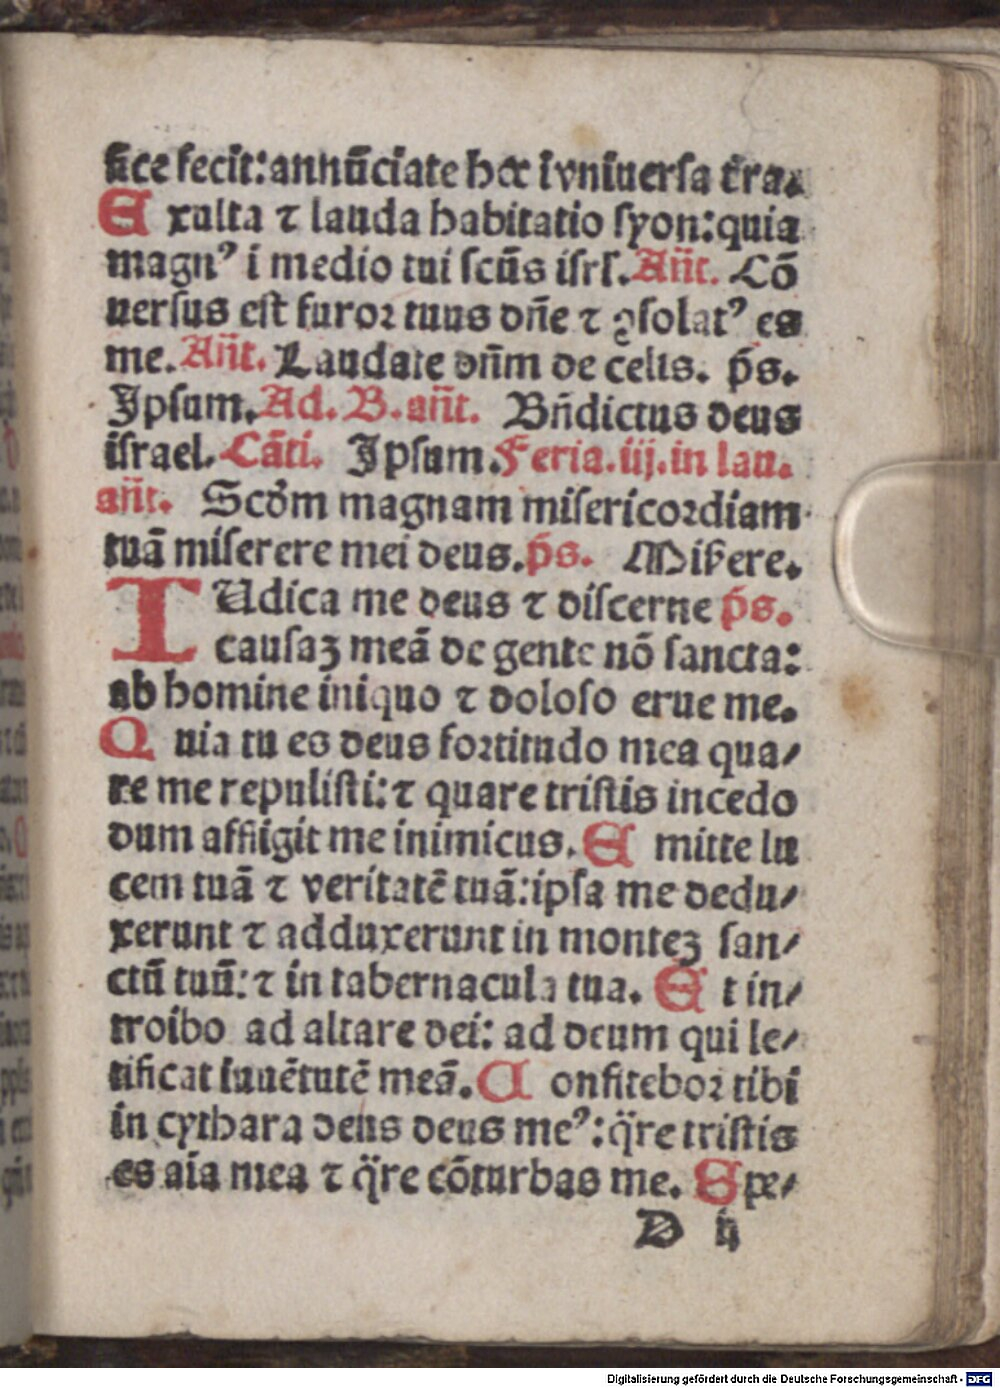 fice fecit: annũciate hoc i vniuersa t̃ra.
Exulta ⁊ lauda habitatio syon: quia
magnꝰ i medio tui scũs isrl. Añt. Cõ
uersus est furor tuus dñe ⁊ ꝯsolatꝰ es
me. Añt. Laudate dñm de celis. p̃s.
Ipsum. Ad. B. añt. Bñdictus deus
israel. Cãti. Ipsum. Feria. iij. in lau.
añt. Scd̃m magnam misericordiam
tuã miserere mei deus. p̃s. Miſ̃ere.
IUdica me deus ⁊ discerne p̃s.
causaꝫ meã de gente nõ sancta:
ab homine iniquo ⁊ doloso erue me.
Quia tu es deus fortitudo mea qua/
re me repulisti: ⁊ quare tristis incedo
dum affligit me inimicus. Emitte lu
cem tuã ⁊ veritatẽ tuã: ipsa me dedu/
xerunt ⁊ adduxerunt in monteꝫ san/
ctũ tuũ: ⁊ in tabernacula tua. Et in/
troibo ad altare dei: ad deum qui le/
tificat iuuẽtutẽ meã. Confitebor tibi
in cythara deus deus meꝰ: q̃re tristis
es aĩa mea ⁊ q̃re cõturbas me. Spe/
D ij
Digitalisierung gefördert durch die Deutsche Forschungsgemeinschaft - DFG